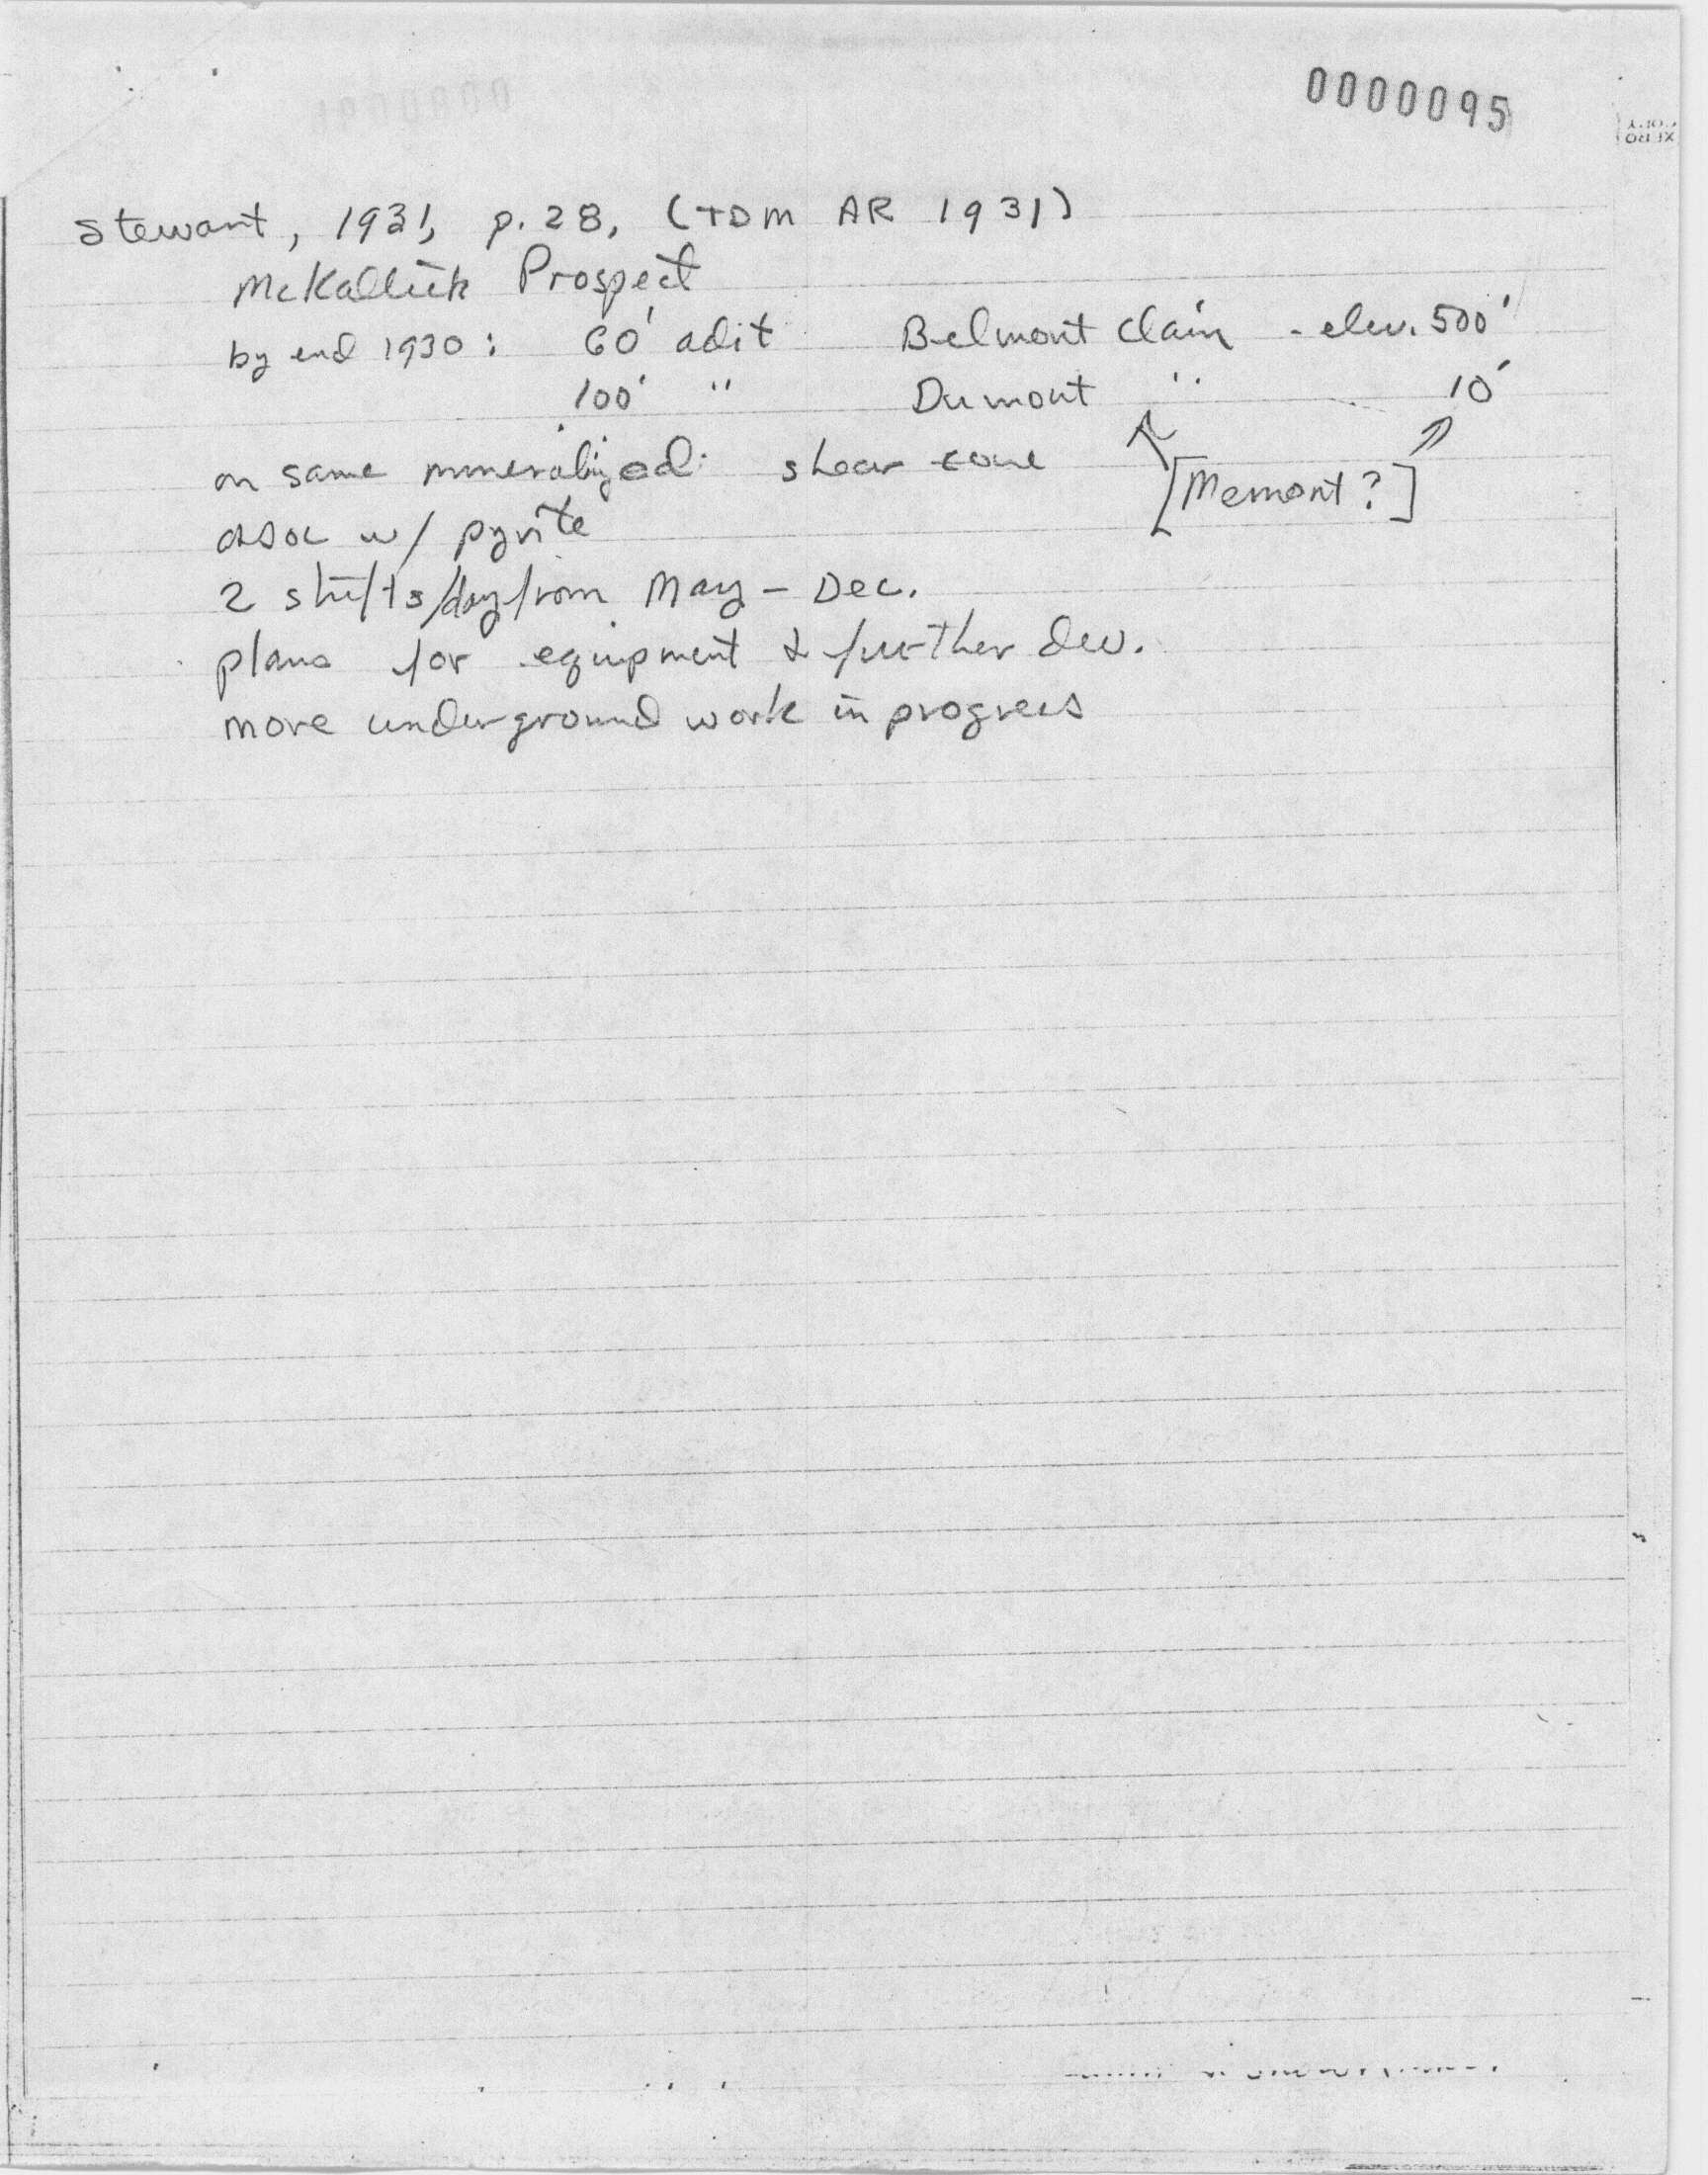 0000095
XERO
COPY
Stewart, 1931, p. 28, (TDM AR 1931)
McKallick Prospect
by end 1930: 60' adit Belmont Claim - elev. 500'
100' " Dumont " 10'
on same mineralized shear zone [Memont?]
assoc w/ pyrite
2 shifts/day from May - Dec.
plans for equipment & further dev.
more underground work in progress